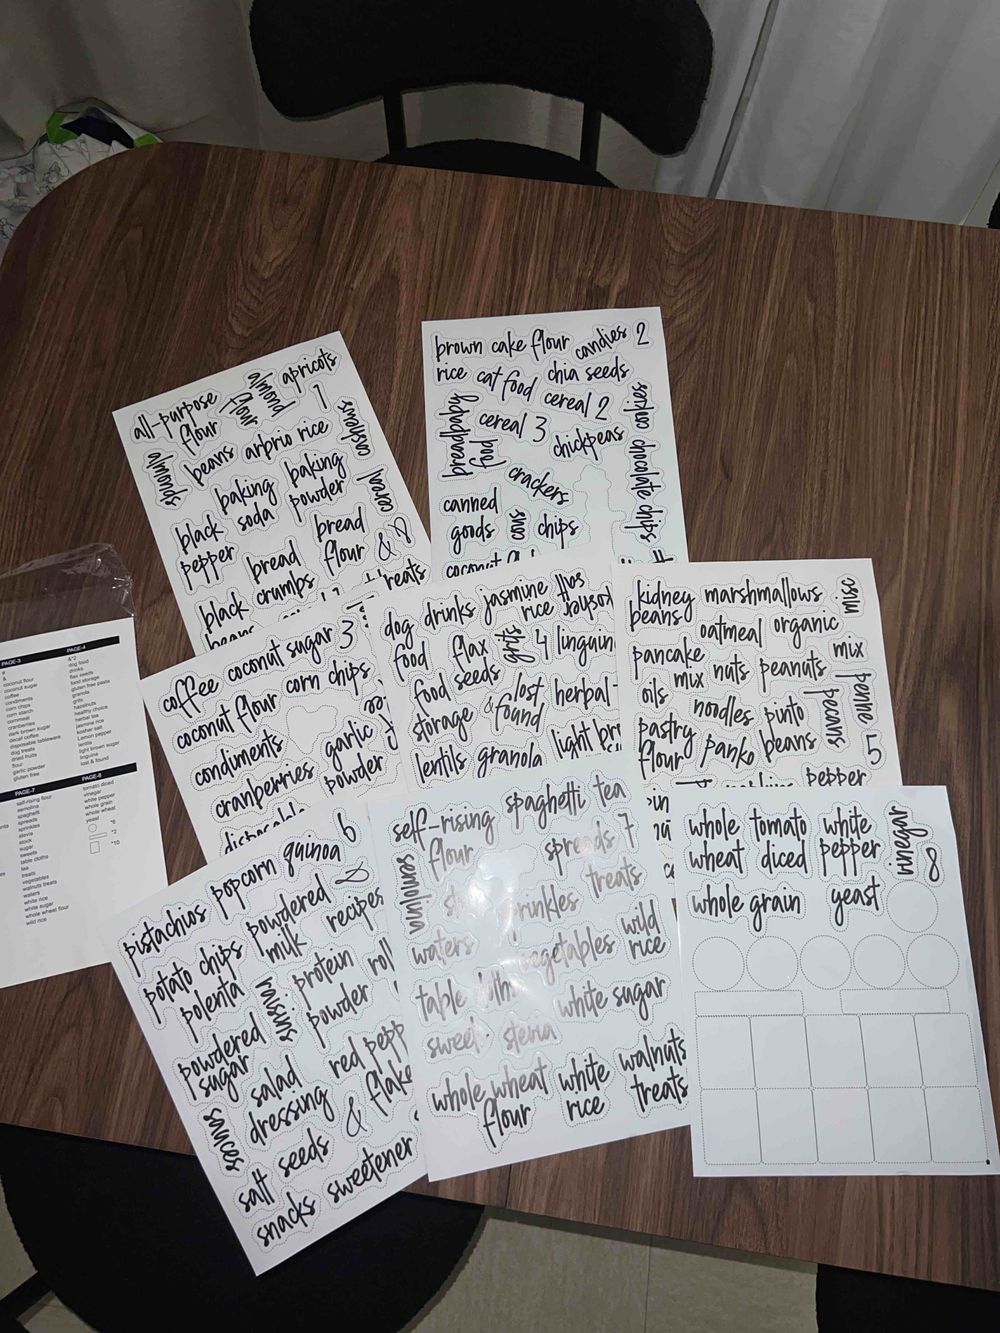 all-purpose
flour
almond
flour
apricots
1
almonds
beans
arbrio rice
cashews
baking
soda
baking
powder
cereal
black
pepper
bread
crumbs
bread
flour
&
black
beans
treats
brown
rice
cake flour
candies
2
cat food
chia seeds
bread
baby
food
cereal 3
cereal 2
chickpeas
crackers
chocolate chips
canned
goods
chips
coconut
coffee
coconut sugar
3
coconut flour
corn chips
condiments
cranberries
garlic
powder
dog
food
drinks
jasmine
rice
flax
seeds
grits
4
food
storage
lost
& found
herbal-
lentils
granola
light
kidney
beans
marshmallows
misc
oatmeal
organic
pancake
mix
nuts
peanuts
mix
oils
noodles
pinto
beans
beans
penne
5
pastry
flour
panko
pepper
pistachios
popcorn
quinoa
6
powdered
milk
&
recipes
potato chips
polenta
raisins
protein
powder
powdered
sugar
salad
dressing
red
&
sauces
salt
seeds
snacks
sweetener
self-rising
flour
spaghetti
tea
semolina
spreads
7
treats
waters
vegetables
wild
rice
table
white sugar
stevia
whole wheat
flour
white
rice
walnuts
treats
whole
wheat
tomato
diced
white
pepper
vinegar
8
whole grain
yeast
PAGE-3
coconut flour
coconut sugar
coffee
condiments
corn chips
corn starch
cornmeal
cranberries
dark brown sugar
decaf coffee
disposable tableware
dog treats
dried fruits
flour
garlic powder
gluten free
PAGE-4
&*2
dog food
drinks
flax seeds
food storage
gluten free pasta
granola
grits
hazelnuts
healthy choice
herbal tea
jasmine rice
kosher salt
Lemon pepper
lentils
light brown sugar
linguine
lost & found
PAGE-7
self-rising flour
semolina
spaghetti
spreads
sprinkles
stevia
stock
sugar
sweets
table cloths
tea
treats
vegetables
walnuts treats
waters
white rice
white sugar
whole wheat flour
wild rice
PAGE-8
tomato diced
vinegar
white pepper
whole grain
whole wheat
yeast
*6
*2
*10